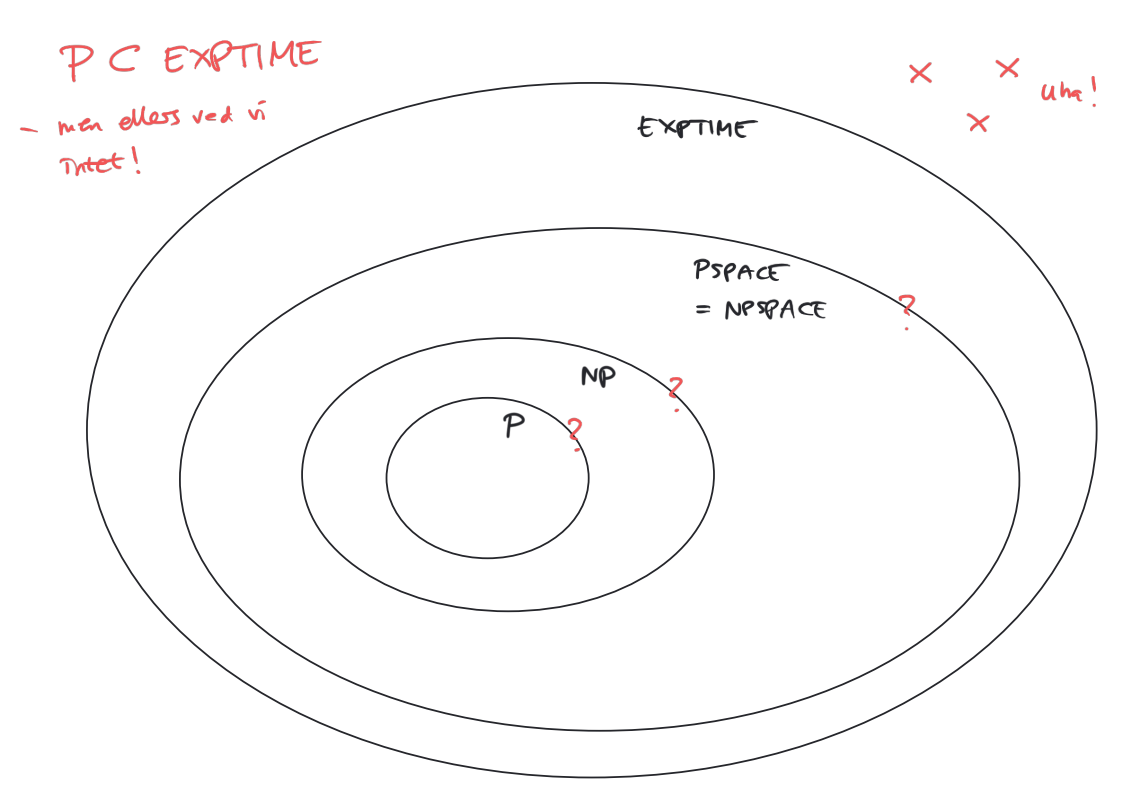 P ⊂ EXPTIME
- men ellers ved vi
intet!
× × ×
uha!
EXPTIME
PSPACE
= NPSPACE
?
NP
?
P
?